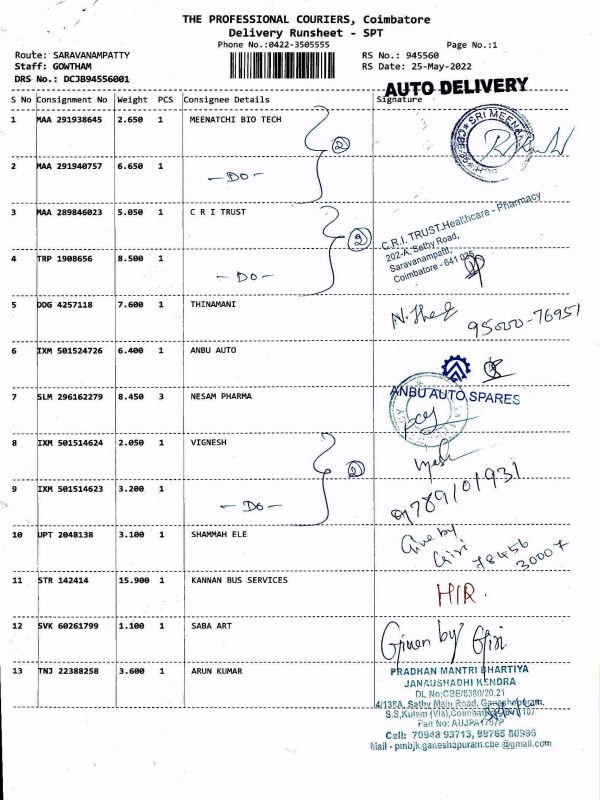 THE PROFESSIONAL COURIERS, Coimbatore
Delivery Runsheet - SPT
Phone No.:0422-3505555 Page No.:1
Route: SARAVANAMPATTY RS No.: 945560
Staff: GOWTHAM RS Date: 25-May-2022
DRS No.: DCJB94556001
AUTO DELIVERY
S No Consignment No Weight PCS Consignee Details Signature
1 MAA 291938645 2.650 1 MEENATCHI BIO TECH
SRI MEENA
2
2 MAA 291940757 6.650 1 - DO -
3 MAA 289846023 5.050 1 C R I TRUST
C.R.I. TRUST.Healthcare - Pharmacy
202-A, Sathy Road,
Saravanampatti,
Coimbatore - 641 035
2
4 TRP 1908656 8.500 1 - DO -
5 DDG 4257118 7.600 1 THINAMANI
95000-76951
6 IXM 501524726 6.400 1 ANBU AUTO
ANBU AUTO SPARES
7 SLM 296162279 8.450 3 NESAM PHARMA
8 IXM 501514624 2.050 1 VIGNESH
2
9 IXM 501514623 3.200 1 - DO -
9789101931
10 UPT 2048138 3.100 1 SHAMMAH ELE
Give by
Giri 78456
30007
11 STR 142414 15.900 1 KANNAN BUS SERVICES
HIR.
12 SVK 60261799 1.100 1 SABA ART
Given by Giri
13 TNJ 22388258 3.600 1 ARUN KUMAR
PRADHAN MANTRI BHARTIYA
JANAUSHADHI KENDRA
DL No:CBE/6380/20.21
4/138A, Sathy Main Road, Ganeshapuram,
S.S.Kulam (Via), Coimbatore 107
Pan No: AUJPA1797P
Cell: 70948 93713, 99765 80996
Mail - pmbjk.ganeshapuram.cbe @gmail.com